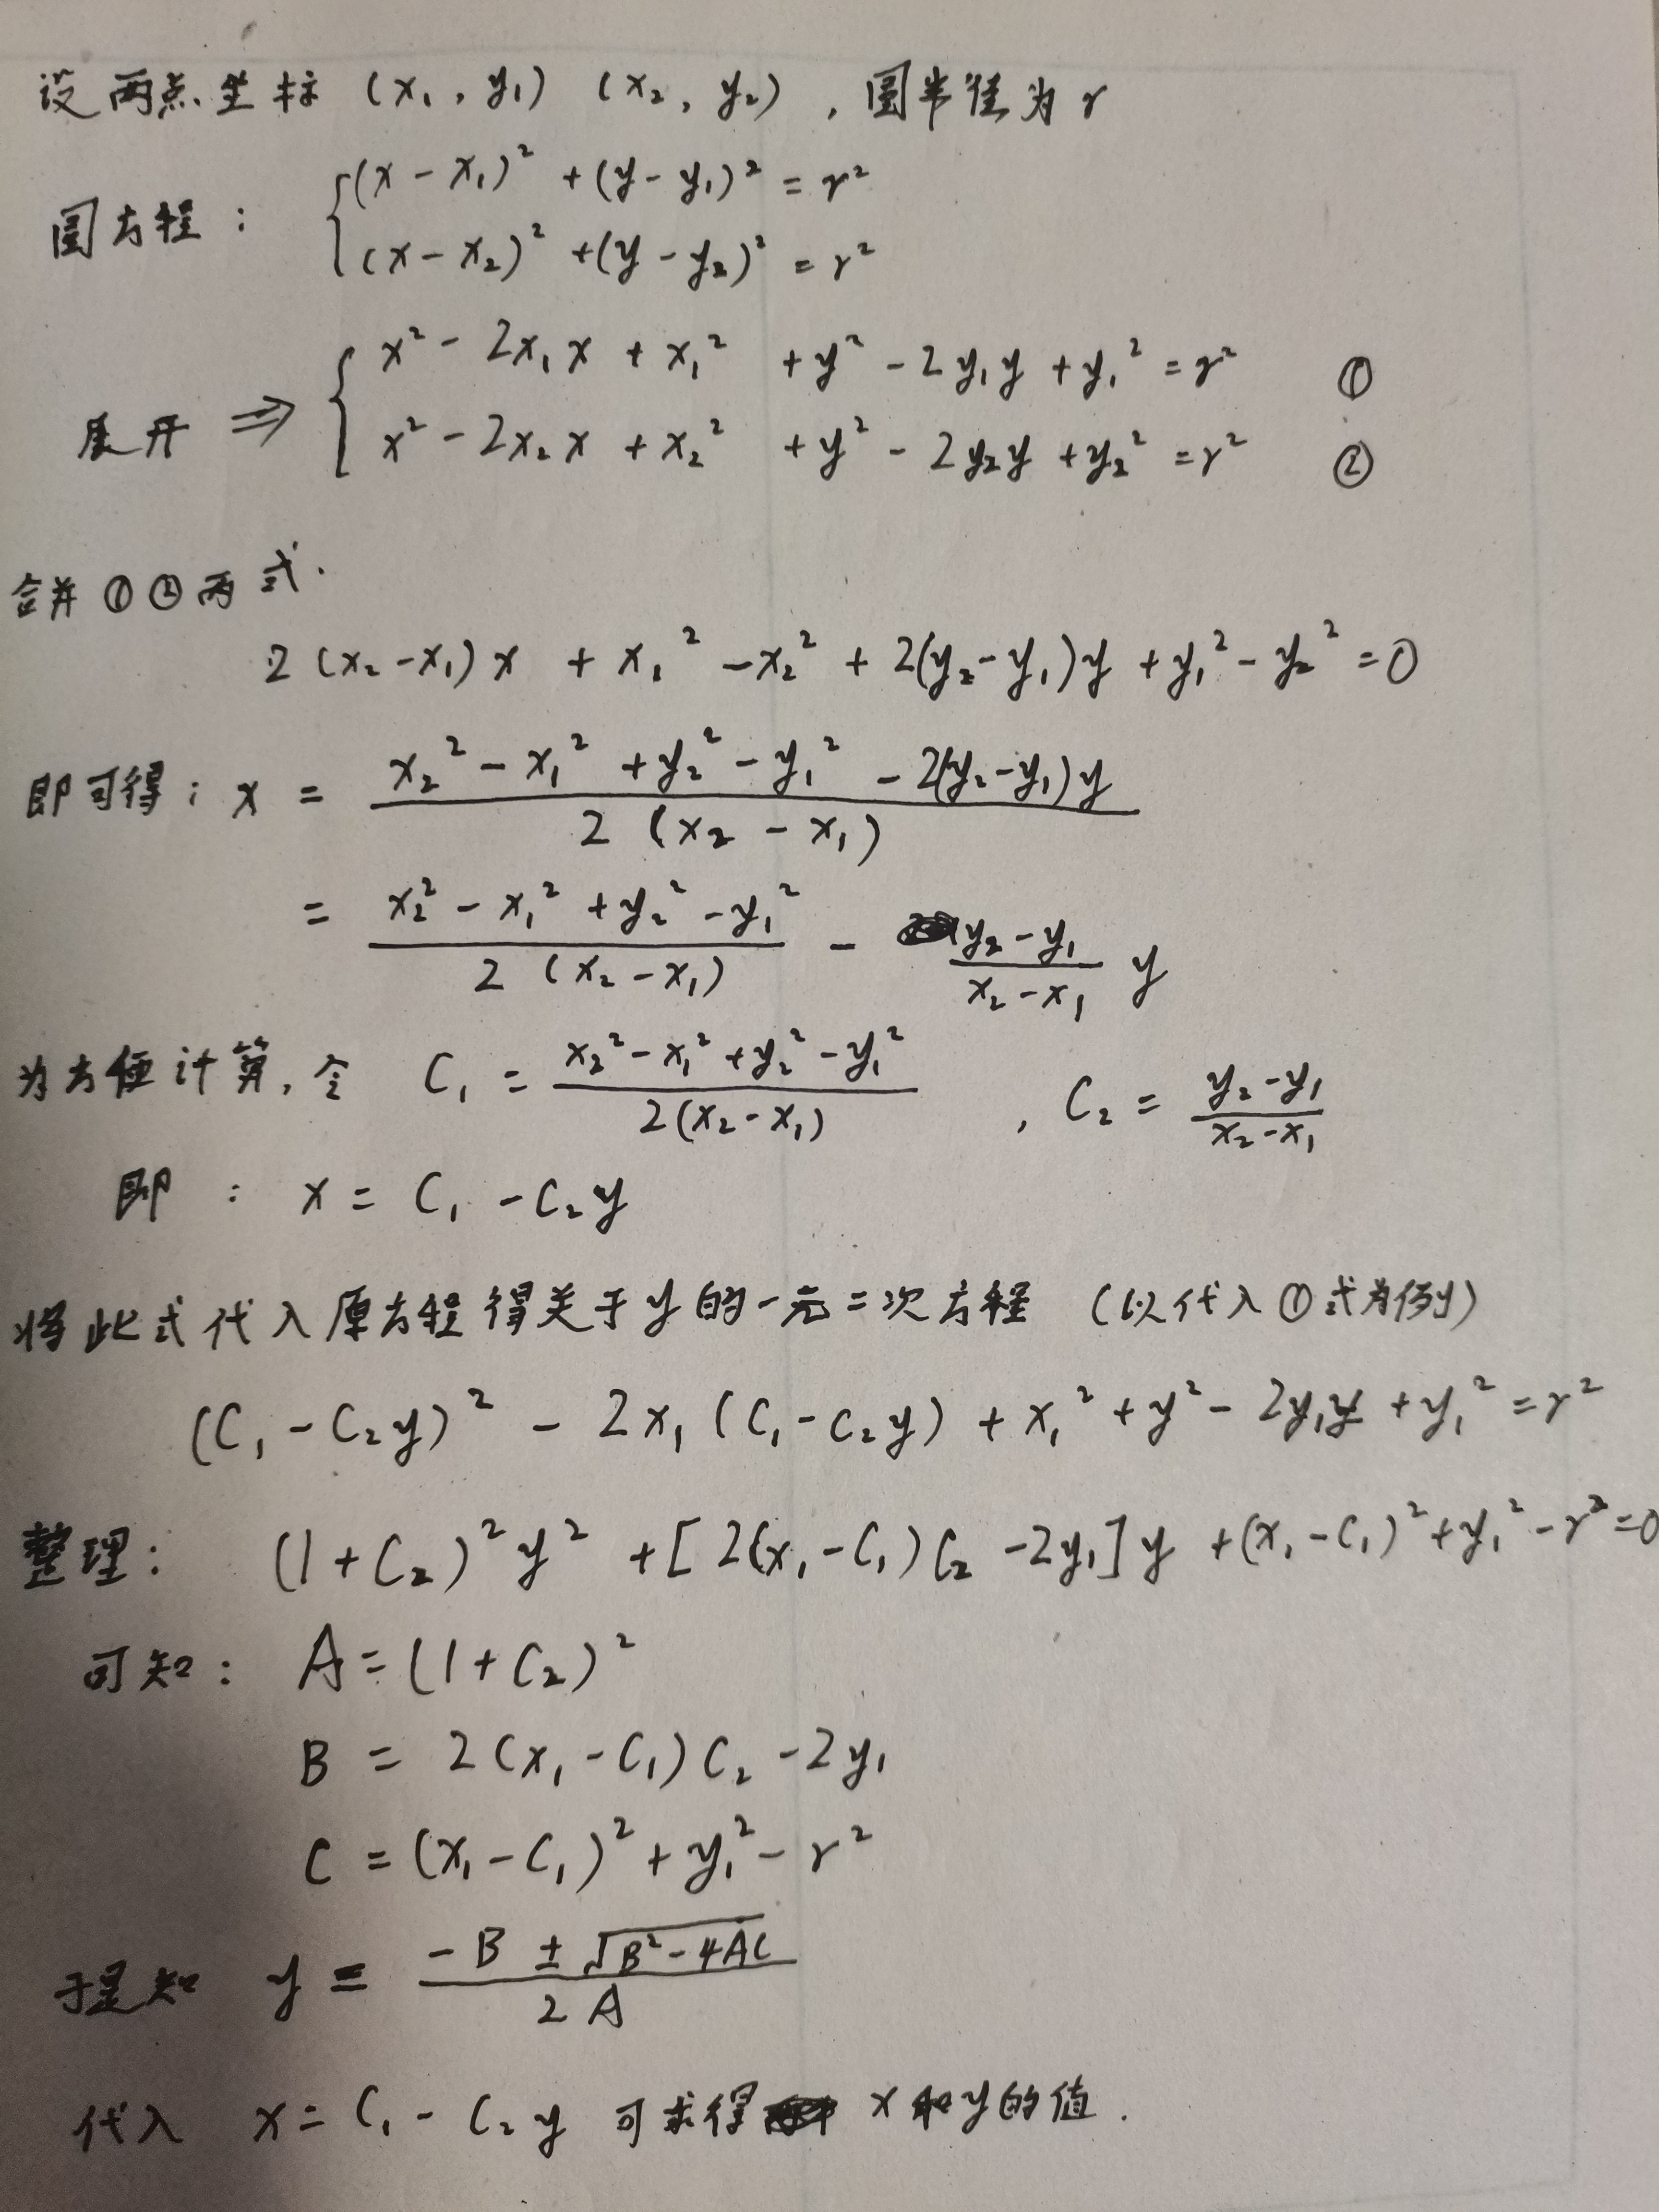 设两点坐标 (x₁, y₁) (x₂, y₂) , 圆半径为 r
圆方程 : {(x - x₁)² + (y - y₁)² = r²
(x - x₂)² + (y - y₂)² = r²
展开 ⇒ { x² - 2x₁x + x₁² + y² - 2y₁y + y₁² = r² ①
x² - 2x₂x + x₂² + y² - 2y₂y + y₂² = r² ②
合并 ① ② 两式.
2(x₂ - x₁)x + x₁² - x₂² + 2(y₂ - y₁)y + y₁² - y₂² = 0
即可得: x = (x₂² - x₁² + y₂² - y₁² - 2(y₂ - y₁)y) / (2(x₂ - x₁))
= (x₂² - x₁² + y₂² - y₁²) / (2(x₂ - x₁)) - (y₂ - y₁) / (x₂ - x₁) y
为方便计算, 令 C₁ = (x₂² - x₁² + y₂² - y₁²) / (2(x₂ - x₁)) , C₂ = (y₂ - y₁) / (x₂ - x₁)
即 : x = C₁ - C₂y
将此式代入原方程得关于y的一元二次方程 (以代入①式为例)
(C₁ - C₂y)² - 2x₁(C₁ - C₂y) + x₁² + y² - 2y₁y + y₁² = r²
整理: (1 + C₂)²y² + [2(x₁ - C₁)C₂ - 2y₁]y + (x₁ - C₁)² + y₁² - r² = 0
可知: A = (1 + C₂)²
B = 2(x₁ - C₁)C₂ - 2y₁
C = (x₁ - C₁)² + y₁² - r²
于是知 y = (-B ± √(B² - 4AC)) / (2A)
代入 x = C₁ - C₂y 可求得 x和y的值.